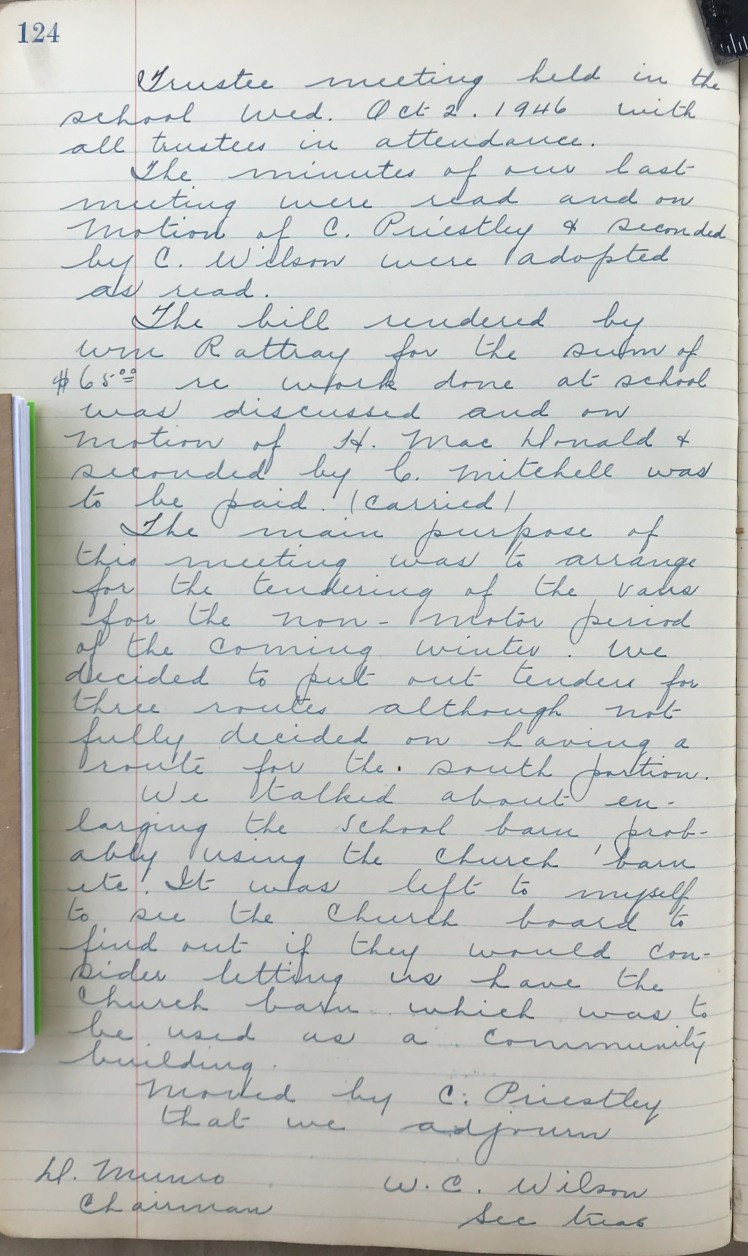 124
Trustee meeting held in the
school Wed. Oct 2. 1946 with
all trustees in attendance.
The minutes of our last
meeting were read and on
motion of C. Priestley & seconded
by C. Wilson were adopted
as read.
The bill rendered by
Wm Rattray for the sum of
$65.00 re work done at school
was discussed and on
motion of H. Mac Donald &
seconded by C. Mitchell was
to be paid. (carried)
The main purpose of
this meeting was to arrange
for the tendering of the vans
for the non-motor period
of the coming winter. We
decided to put out tenders for
three routes although not
fully decided on having a
route for the south portion.
We talked about en-
larging the school barn prob-
ably using the church barn
etc. It was left to myself
to see the church board to
find out if they would con-
sider letting us have the
church barn which was to
be used as a community
building.
Moved by C. Priestley
that we adjourn
D. Munro W.C. Wilson
Chairman Sec treas